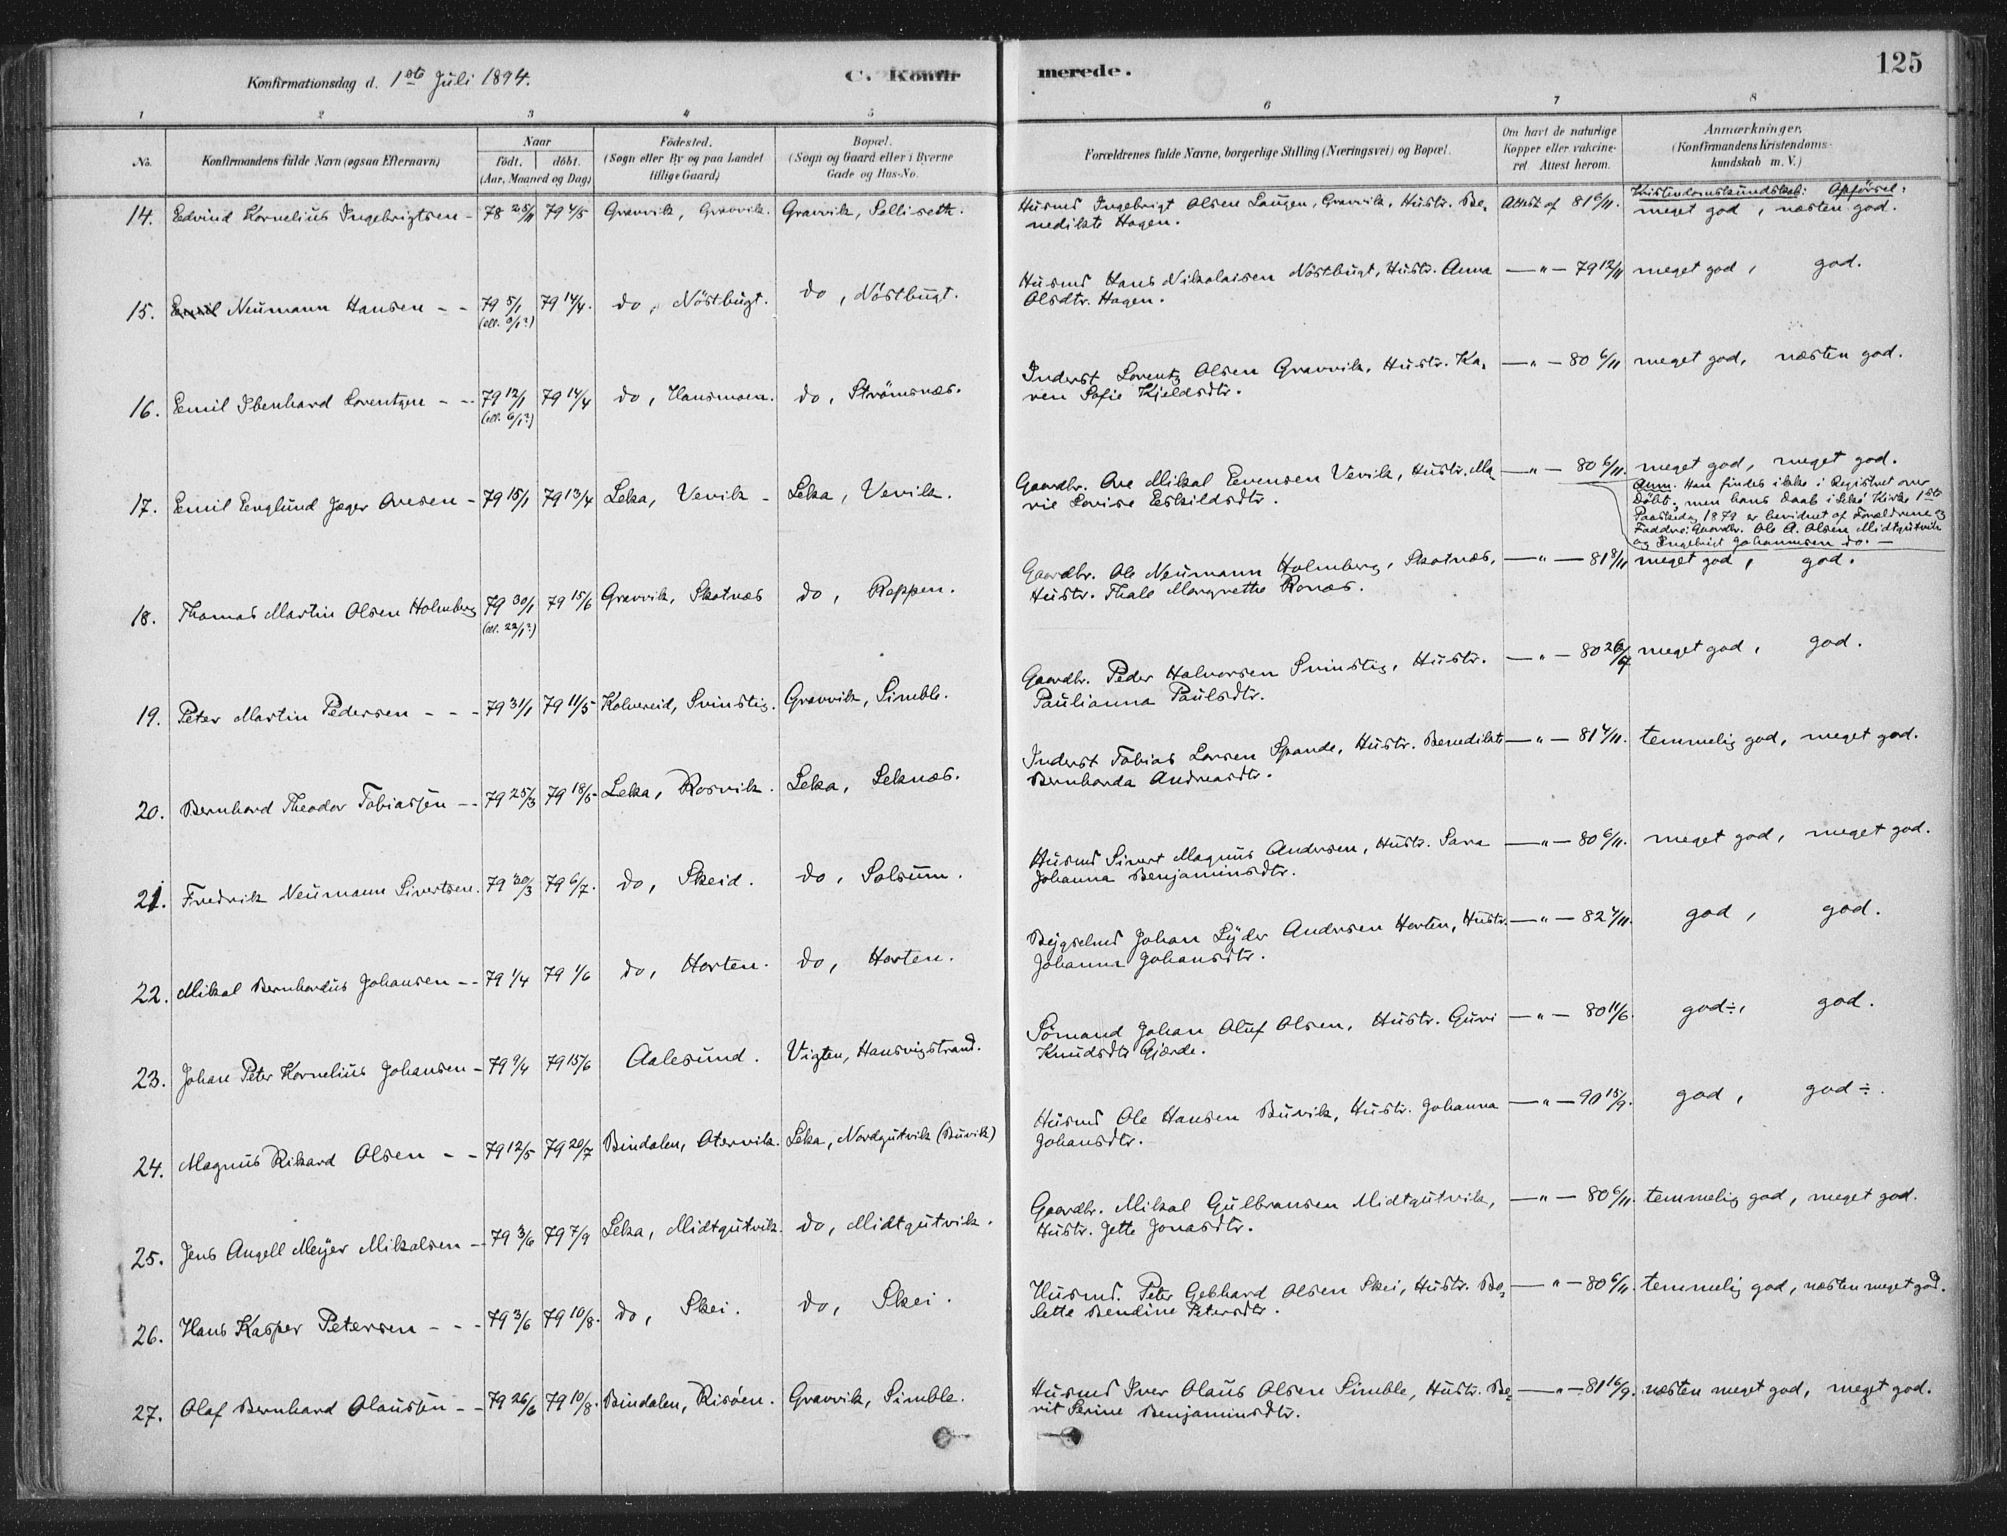 Konfirmationsdag d. 1ste Juli 1894. C. Konfirmerede. 125
1 2 3 4 5 6 7 8
No. Konfirmandens fulde Navn (ogsaa Efternavn) Naar födt. döbt. (Aar, Maaned og Dag) Födested. (Sogn eller By og paa Landet tillige Gaard) Bopæl. (Sogn og Gaard eller i Byerne Gade og Hus-No. Forældrenes fulde Navne, borgerlige Stilling (Næringsvei) og Bopæl. Om havt de naturlige Kopper eller vakcineret Attest herom. Anmærkninger. (Konfirmandens Kristendomskundskab m. V.)
Kristendomskundskab: Opförsel:
14. Edvind Kornelius Ingebrigtsen - 78 25/11 79 4/5 Gravvik, Gravvik. Gravvik, Solliseth. Husmd Ingebrigt Olsen Laugen, Gravvik, Hustr. Be- Attest af 81 6/11. meget god, næsten god.
nedikte Hagen.
15. Emil Neumann Hansen - - 79 5/1 79 14/4. do, Nöstbugt. do, Nöstbugt. Husmd Hans Nikolaisen Nöstbugt, Hustr. Anna — " — 79 12/11 meget god, god.
(ell. 9/1?) Olsdtr. Hagen.
16. Emil Ibenhard Lorentzen - - 79 12/1 79 14/4 do, Hansmoen. do, Strömsnæs. Inderst Lorentz Olsen Gravvik, Hustr. Ka- — " — 80 6/11 meget god, næsten god.
(ell. 6/1?) ren Sofie Kjeldsdtr.
17. Emil Englund Jæger Ovesen - 79 15/1 79 13/4 Leka, Vevik - Leka, Vevik. Gaardbr. Ove Mikal Evensen Vevik, Hustr. Ma- — " — 80 6/11. meget god, meget god.
rie Lovise Eskildsdtr.
Anm. Han findes ikke i Registret over
Döbte; men hans Daab i Lekö Kirke 1ste
Paaskedag 1879 er bevidnet af Forældrene og
Faddre: Gaardbr. Ole A. Olsen Midtgutvik
og Ingebrigt Johannesen do. -
18. Thomas Martin Olsen Holmberg 79 30/1 79 15/6 Gravvik, Skotnæs do, Roppen. Gaardbr. Ole Neumann Holmberg, Skotnæs, — " — 81 8/11 meget god, god.
(ell. 22/1?) Hustr. Thale Margrethe Ronæs.
19. Peter Martin Pedersen - - - 79 31/1 79 11/5 Kolvereid, Svinstig. Gravvik, Simble. Gaardbr. Peder Halvorsen Svinstig, Hustr. — " — 80 26/7 meget god, god.
Paulianna Paulsdtr.
20. Bernhard Theodor Tobiassen - - 79 25/3 79 18/5 Leka, Rosvik. Leka, Leknæs. Inderst Tobias Larsen Spande, Hustr. Benedikte — " — 81 4/11. temmelig god, meget god.
Bernharda Andreasdtr.
21. Fredrik Neumann Sivertsen. 79 30/3 79 6/7. do, Skeid. do, Solsum. Husmd Sivert Magnus Andersen, Hustr. Sara — " — 80 6/11. meget god, meget god.
Johanna Benjaminsdtr.
22. Mikal Bernhardus Johansen - - 79 1/4 79 1/6 do, Horten. do, Horten. Bygselmd Johan Lyder Andersen Horten, Hustr. — " — 82 4/11. god, god.
Johanna Johansdtr.
23. Johan Peter Kornelius Johansen - 79 9/4 79 15/6 Aalesund. Vigten, Hansvigstrand. Sömand Johan Oluf Olsen, Hustr. Guri — " — 80 11/6. god÷, god.
Knudsdtr Gjærde.
24. Magnus Rikard Olsen - - 79 12/5 79 20/7 Bindalen, Otervik. Leka, Nordgutvik (Buvik) Husmd Ole Hansen Buvik, Hustr. Johanna — " — 90 15/9. god, god÷.
Johansdtr.
25. Jens Angell Meyer Mikalsen - 79 3/6 79 7/9 Leka, Midtgutvik. do, Midtgutvik. Gaardbr. Mikal Gulbransen Midtgutvik, — " — 80 6/11. temmelig god, meget god.
Hustr. Jette Jonasdtr.
26. Hans Kasper Petersen - - - 79 3/6 79 10/8. do, Skei. do, Skei. Husmd. Peter Gebhard Olsen Skei, Hustr. Be- — " — 80 6/11. temmelig god, næsten meget god.
lette Bendine Petersdtr.
27. Olaf Bernhard Olaussen - - 79 26/6 79 10/8. Bindalen, Risöen. Gravvik, Simble. Husmd Iver Olaus Olsen Simble, Hustr. Be- — " — 81 16/9. næsten meget god, meget god.
rit Serine Benjaminsdtr.